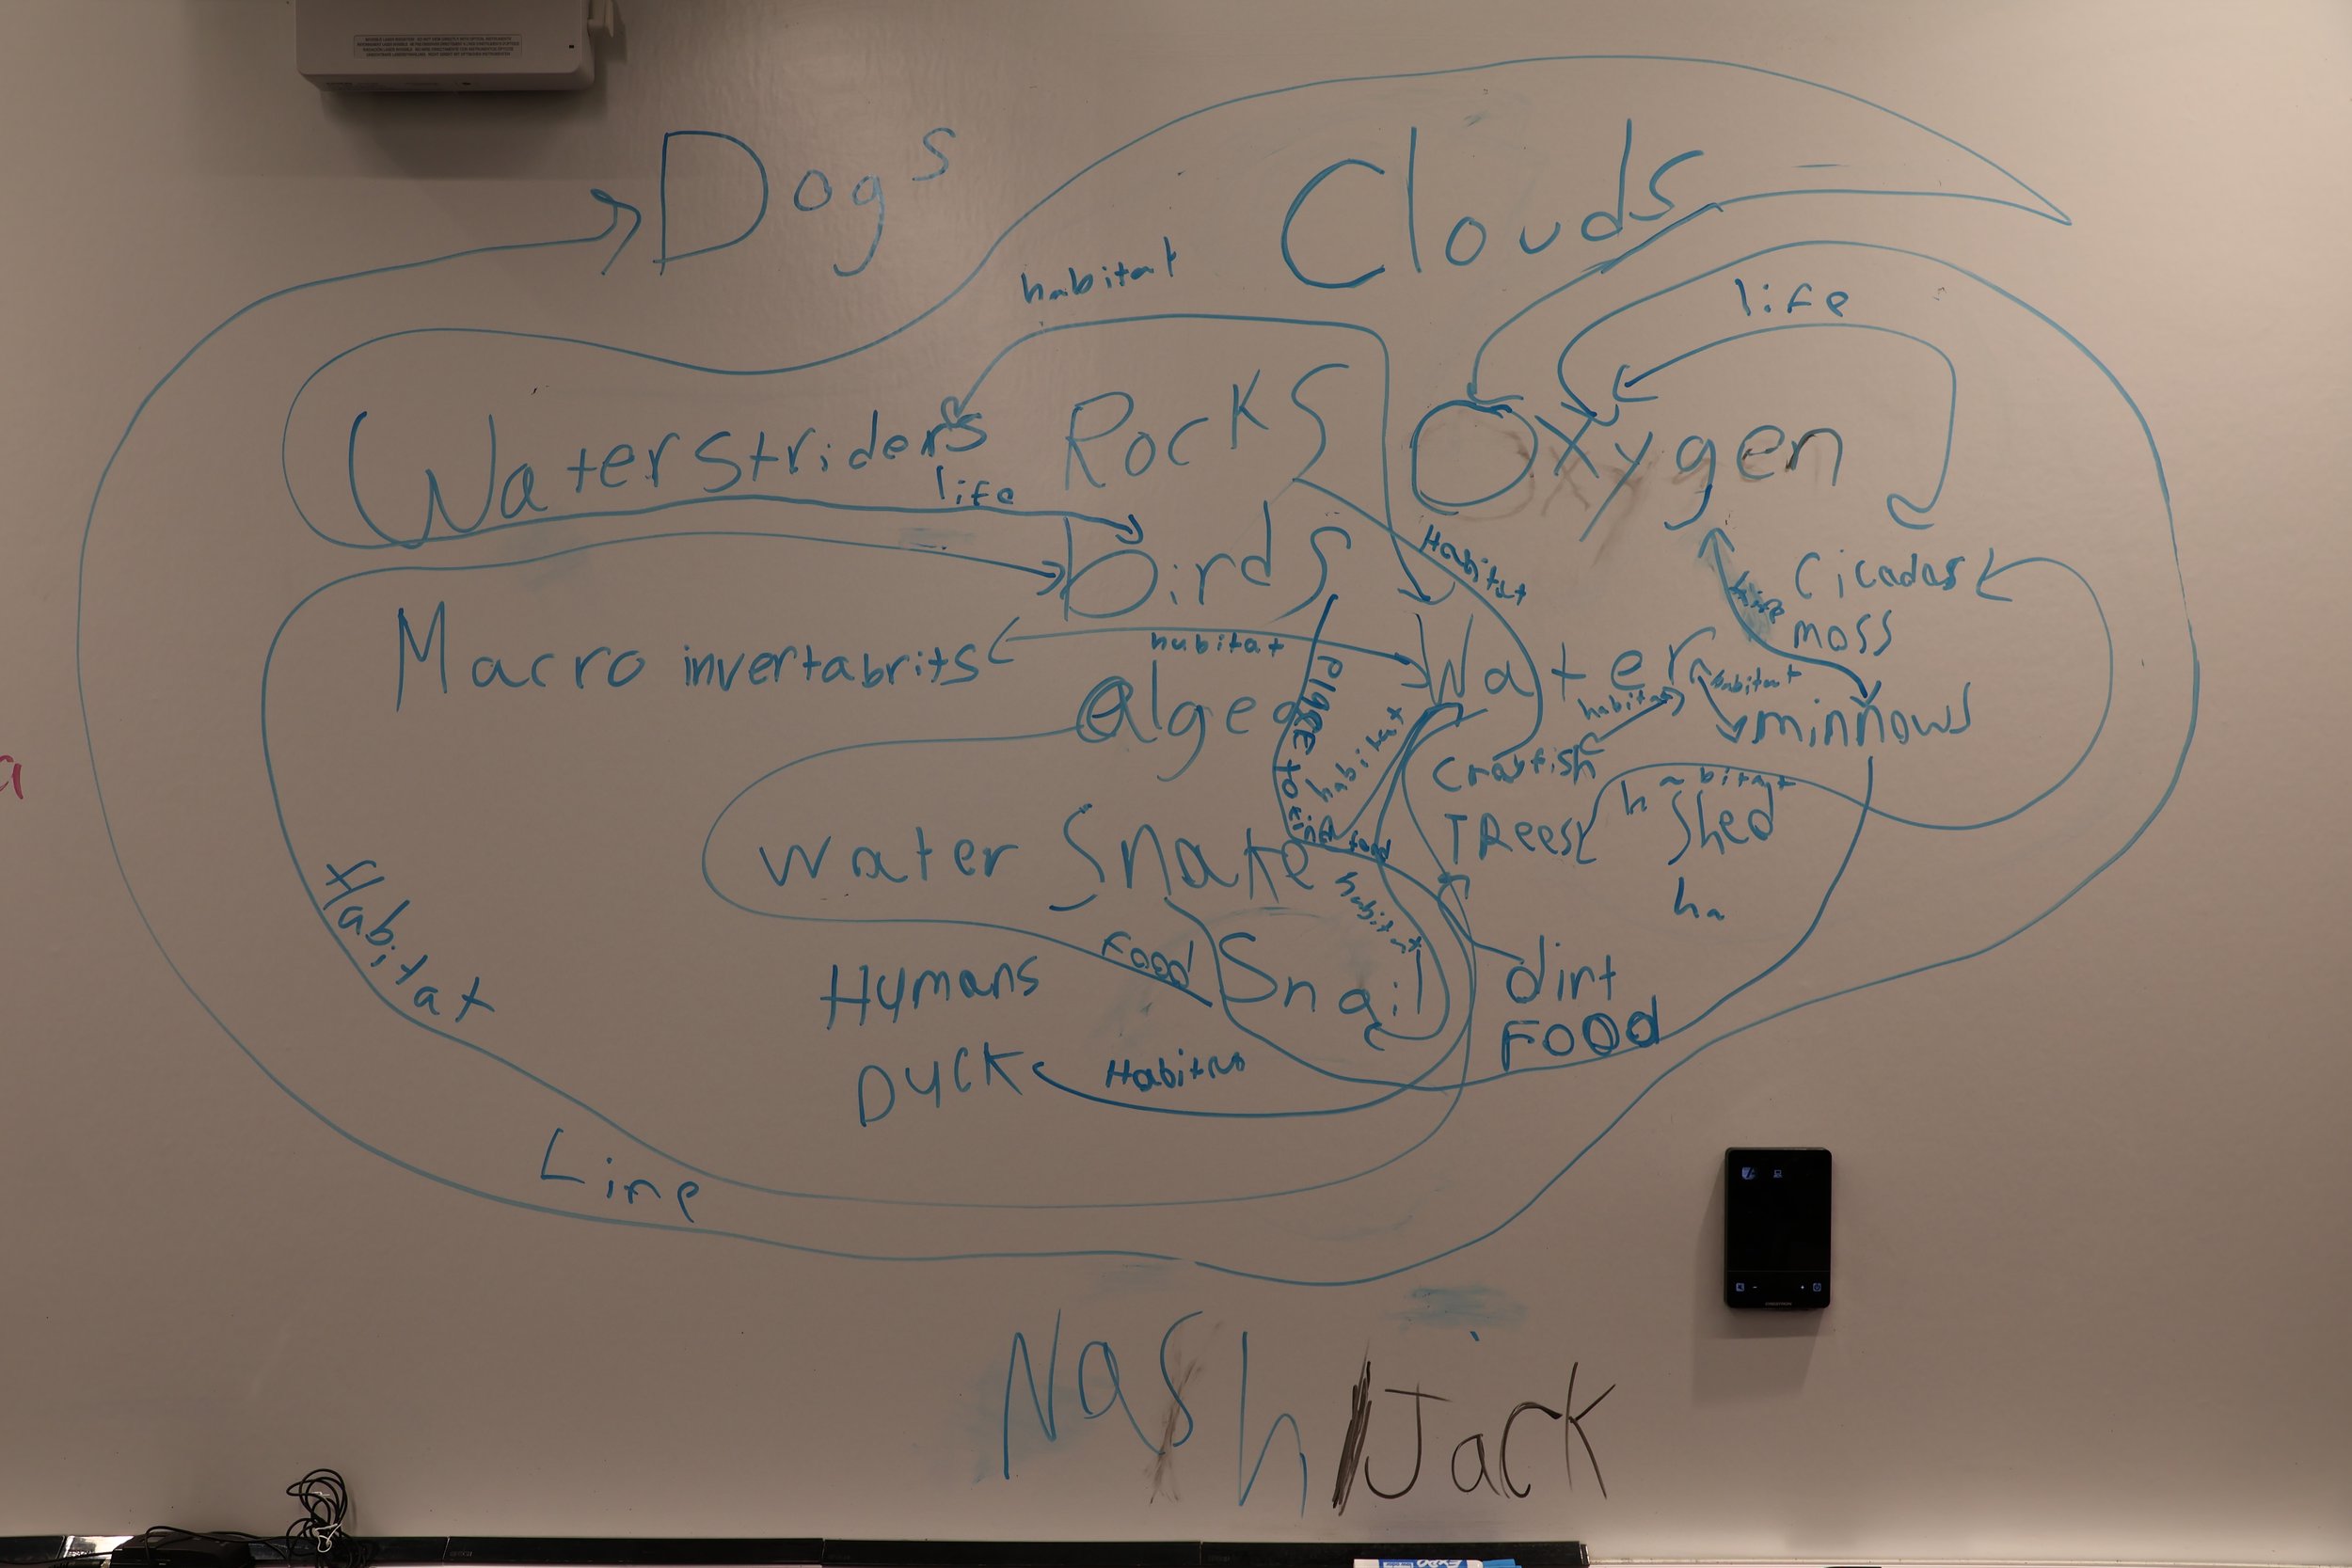 Dogs
Clouds
habitat
life
Waterstriders
Rocks
Oxygen
life
birds
Habitat
Cicadas
moss
Macro invertabrits
hubitat
Water
habitat
habitat
algea
Place to
habitat
minnows
Crayfish
habitat
water Snake
food
TRees
Shed
ha
habitat
Habitat
Food
Humans
Snail
dirt
FOOD
DUCK
Habitat
Life
Nash
Jack
a